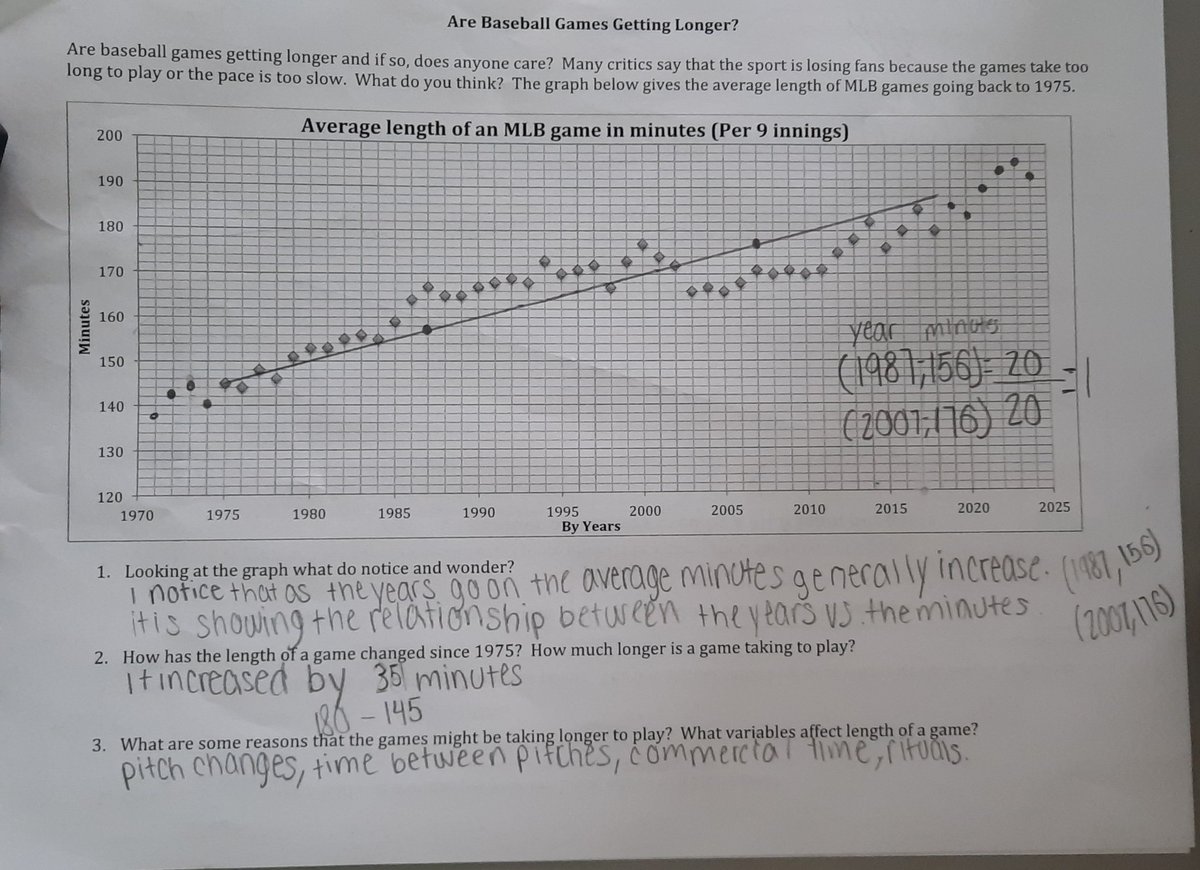 Are Baseball Games Getting Longer?
Are baseball games getting longer and if so, does anyone care? Many critics say that the sport is losing fans because the games take too
long to play or the pace is too slow. What do you think? The graph below gives the average length of MLB games going back to 1975.
Average length of an MLB game in minutes (Per 9 innings)
200
190
180
170
160
150
140
130
120
Minutes
1970 1975 1980 1985 1990 1995 2000 2005 2010 2015 2020 2025
By Years
year minutes
(1987, 156) = 20 = 1
(2007, 176) 20
1. Looking at the graph what do notice and wonder?
i notice that as the years go on the average minutes generally increase. (1987, 156)
it is showing the relationship between the years vs. the minutes. (2007, 176)
2. How has the length of a game changed since 1975? How much longer is a game taking to play?
It increased by 35 minutes
180 - 145
3. What are some reasons that the games might be taking longer to play? What variables affect length of a game?
pitch changes, time between pitches, commercial time, rituals.